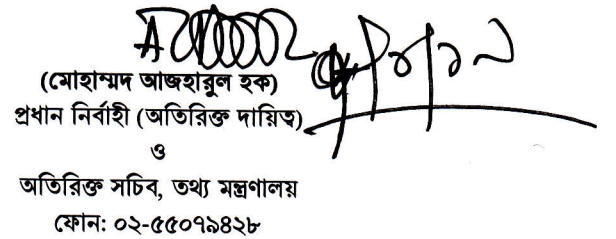 (মোহাম্মদ আজহারুল হক)
প্রধান নির্বাহী (অতিরিক্ত দায়িত্ব)
ও
অতিরিক্ত সচিব, তথ্য মন্ত্রণালয়
ফোন: ০২-৫৫০৭৯৪২৮